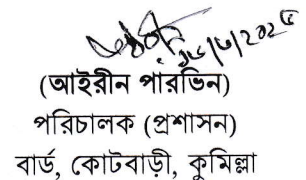 (আইরীন পারভিন)
পরিচালক (প্রশাসন)
বার্ড, কোটবাড়ী, কুমিল্লা